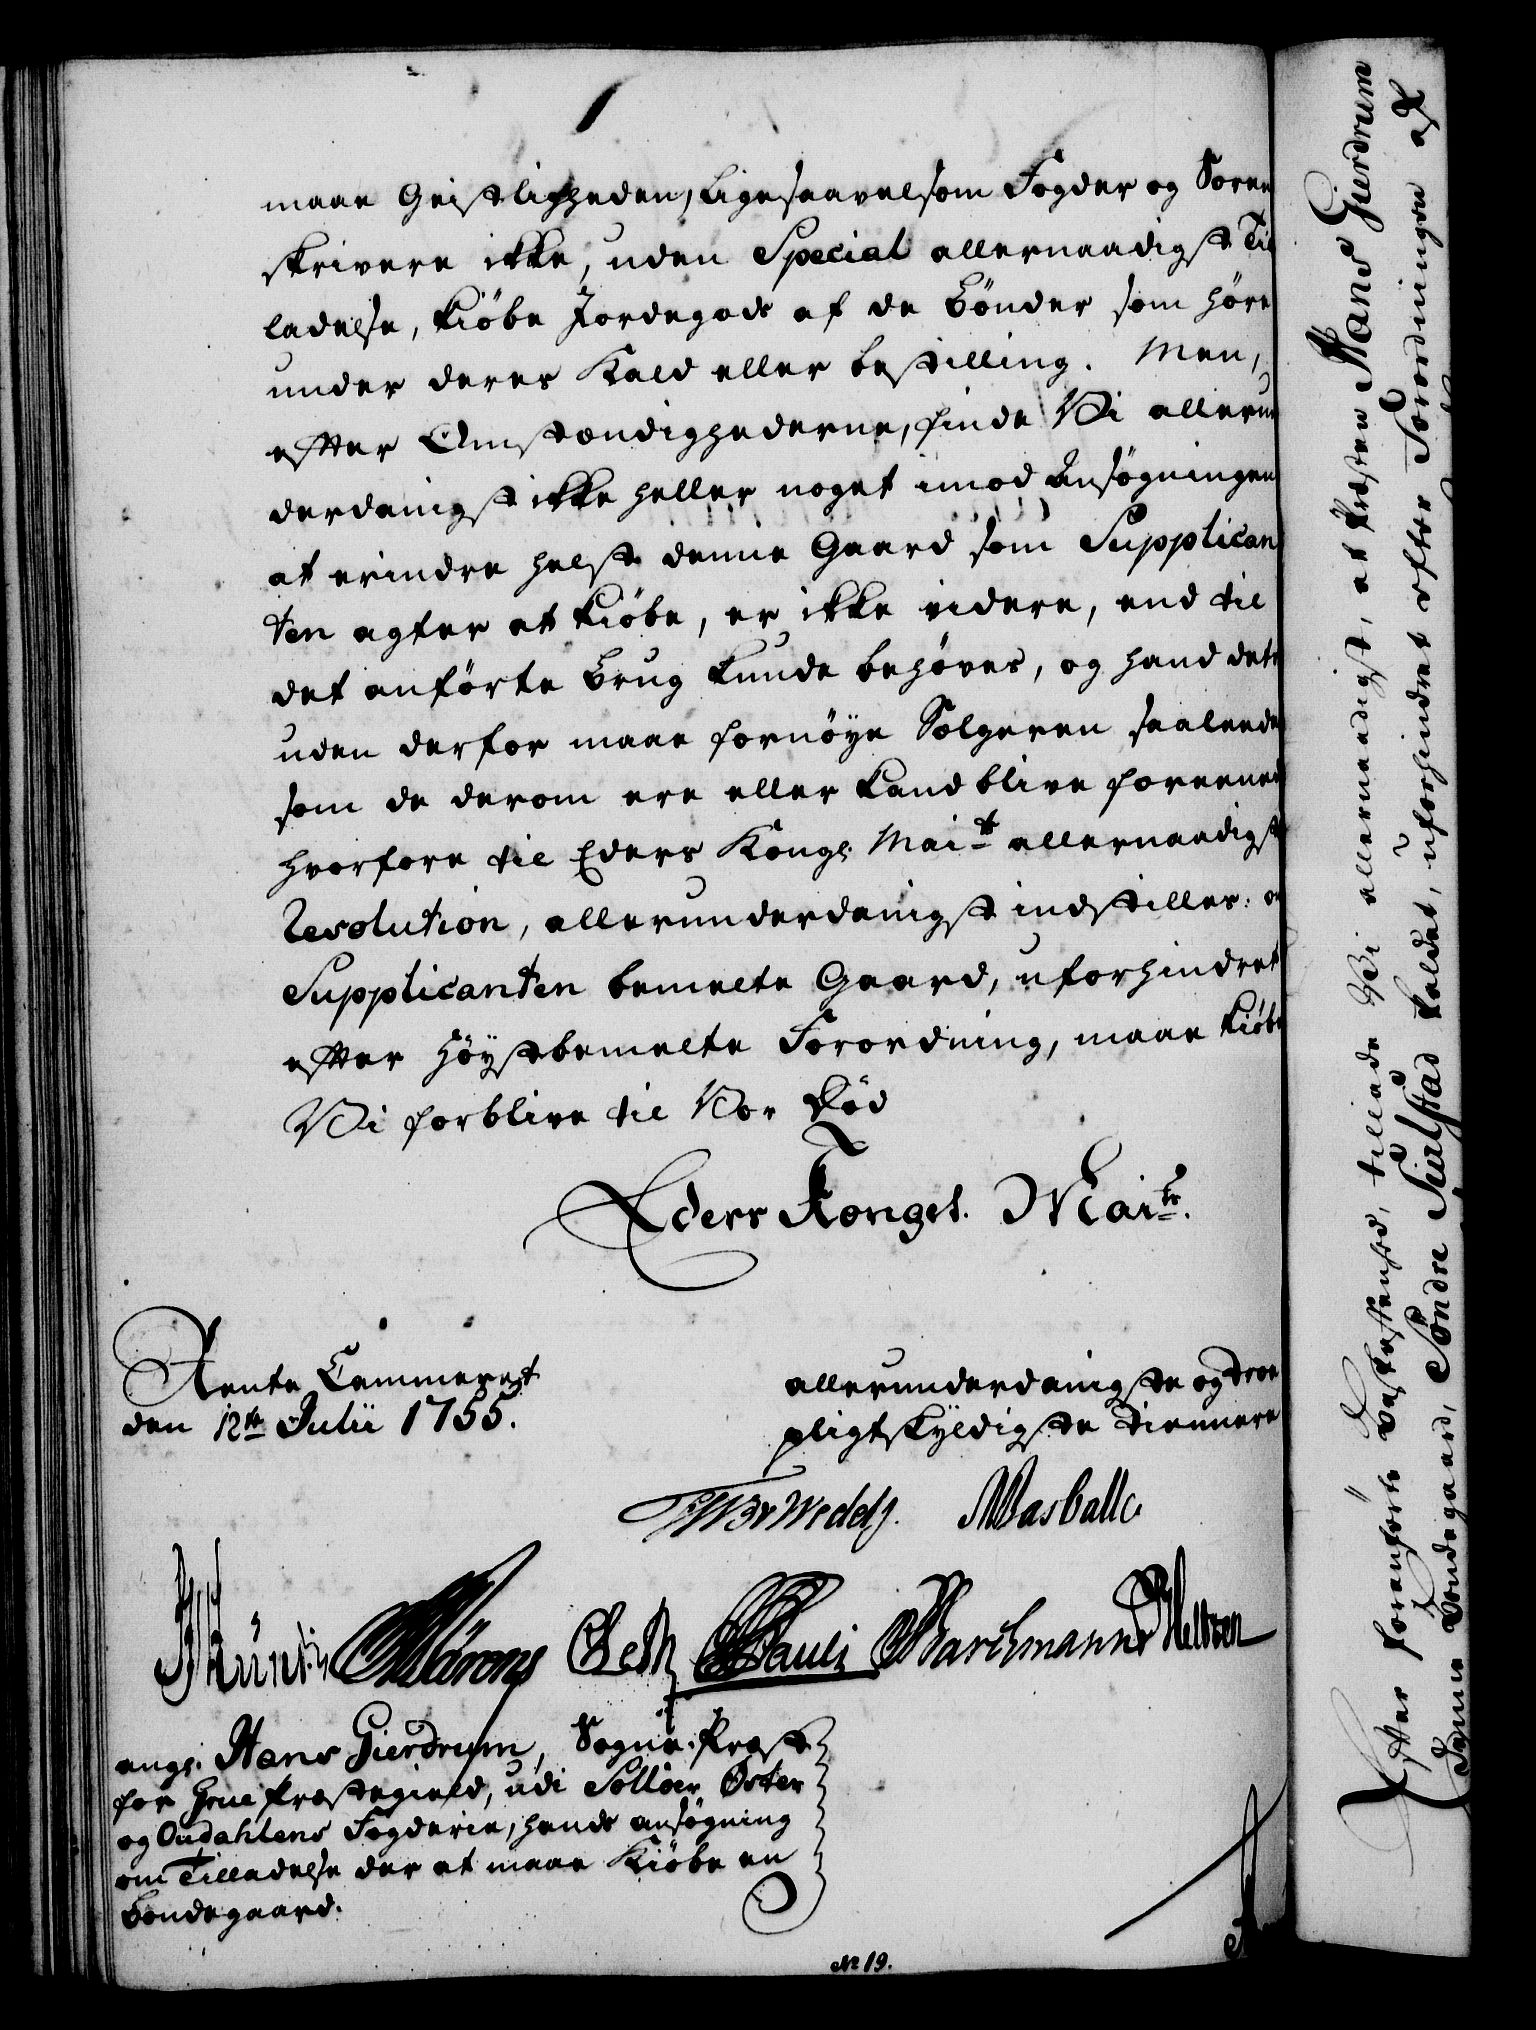 maae Geistligheden, ligesaavelsom Fogder og Soren
skrivere ikke, uden Special allernaadigst Til
ladelse, kiöbe Jordegods af de Bönder som höre
under deres Kald eller bestilling. Men,
efter Omstændighederne, finde Vi allerun
derdanigst ikke heller noget imod Ansögningen
at erindre helst denne Gaard som Supplican
ten agter at kiöbe, er ikke videre, end til
det anförte Brug kunde behöves, og hand des
uden derfor maae fornöye Sælgeren saaleedes
som de derom ere eller kand blive foreened
hvorfore til Eders Kongl. Mait allernaadigst
Resolution, allerunderdanigst indstilles: om
Supplicanten bemelte Gaard, uforhindret
efter höystbemelte Forordning, maae kiöbe
Vi forblive til Vor Död
Eders Kongel. Maits.
Rente Cammeret
den 12te Julii 1755.
allerunderdanigste og troe
pligtskyldigste Tiennere
Pauli
angl. Hans Gierdrum, Sogne-Præst
for Grue Præstegield, udi Solloer Öster
og Oudahlens Fogderie, hands ansögning
om Tilladelse der at maae Kiöbe en
Bondegaard.
No 19.
Efter foranförte Beskaffenhed, tillade Vi allernaadigst, at Præsten Hans Gierdrum
denne Bondegaard, Söndre Siulstad kaldet, uforhindret efter Forordningen af